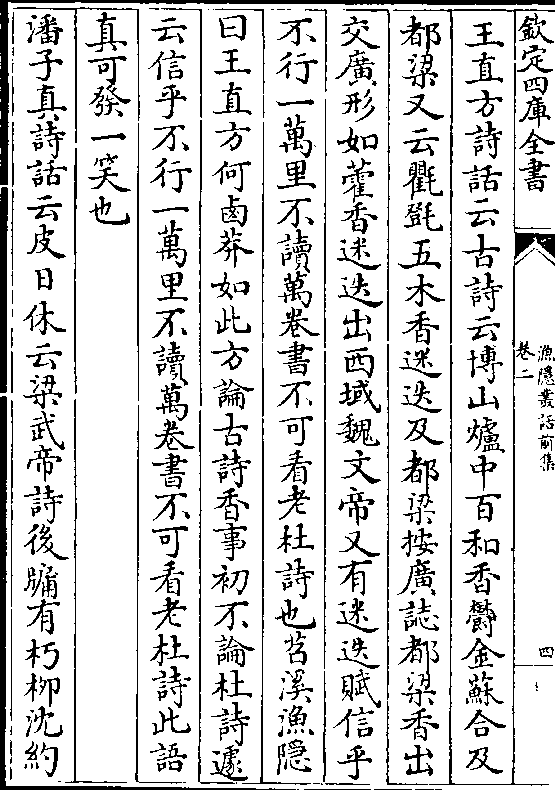 欽定四庫全書
漁隱叢話前集
卷二
四
王直方詩話云古詩云博山爐中百和香鬱金蘇合及
都梁又云氍㲪五木香迷迭及都梁按廣誌都梁香出
交廣形如藿香迷迭出西域魏文帝又有迷迭賦信乎
不行一萬里不讀萬卷書不可看老杜詩也苕溪漁隱
曰王直方何鹵莽如此方論古詩香事初不論杜詩遽
云信乎不行一萬里不讀萬卷書不可看老杜詩此語
真可發一笑也
潘子真詩話云皮日休云梁武帝詩後牖有朽柳沈約